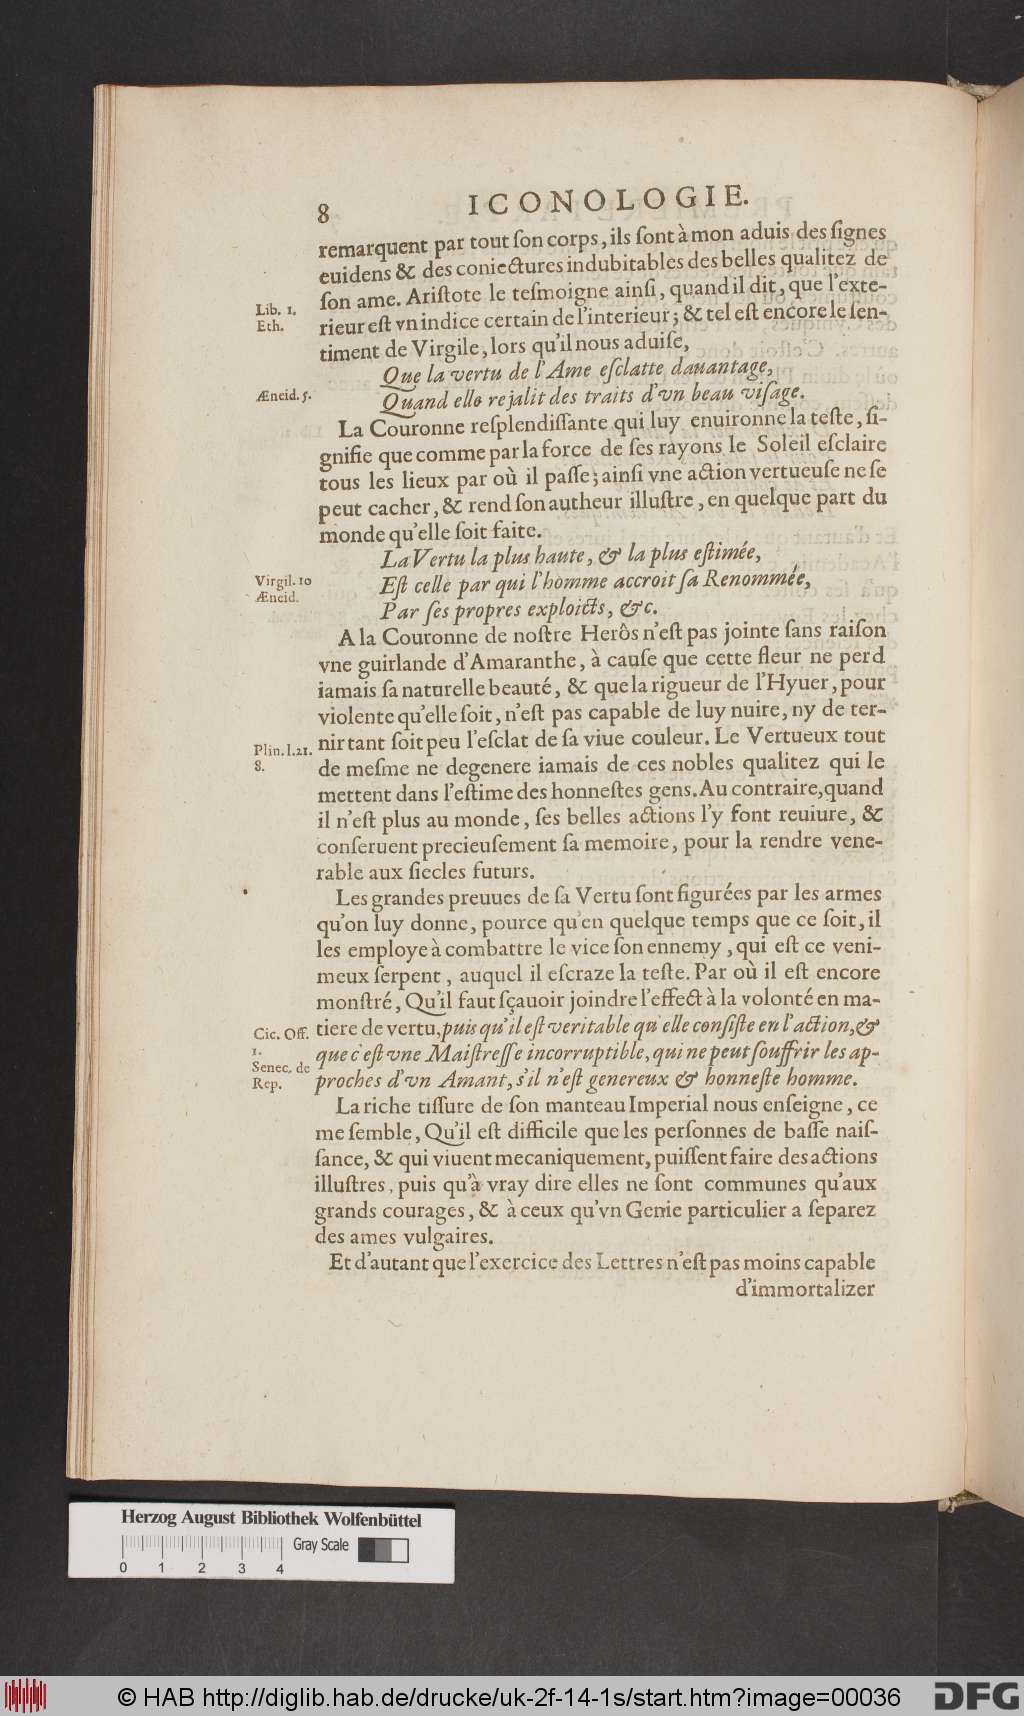 8 ICONOLOGIE.
remarquent par tout ſon corps, ils ſont à mon aduis des ſignes
euidens & des coniectures indubitables des belles qualitez de
ſon ame. Ariſtote le teſmoigne ainſi, quand il dit, que l'exte-
Lib. 1.
Eth.
rieur eſt vn indice certain de l'interieur; & tel eſt encore le ſen-
timent de Virgile, lors qu'il nous aduiſe,
Que la vertu de l'Ame eſclatte dauantage,
Æneid. 5.
Quand elle rejalit des traits d'vn beau viſage.
La Couronne reſplendiſſante qui luy enuironne la teſte, ſi-
gnifie que comme par la force de ſes rayons le Soleil eſclaire
tous les lieux par où il paſſe; ainſi vne action vertueuſe ne ſe
peut cacher, & rend ſon autheur illuſtre, en quelque part du
monde qu'elle ſoit faite.
La Vertu la plus haute, & la plus eſtimée,
Virgil. 10
Æneid.
Eſt celle par qui l'homme accroit ſa Renommée,
Par ſes propres exploicts, &c.
A la Couronne de noſtre Herôs n'eſt pas jointe ſans raiſon
vne guirlande d'Amaranthe, à cauſe que cette fleur ne perd
iamais ſa naturelle beauté, & que la rigueur de l'Hyuer, pour
violente qu'elle ſoit, n'eſt pas capable de luy nuire, ny de ter-
Plin. l. 21.
8.
nir tant ſoit peu l'eſclat de ſa viue couleur. Le Vertueux tout
de meſme ne degenere iamais de ces nobles qualitez qui le
mettent dans l'eſtime des honneſtes gens. Au contraire, quand
il n'eſt plus au monde, ſes belles actions l'y font reuiure, &
conſeruent precieuſement ſa memoire, pour la rendre vene-
rable aux ſiecles futurs.
Les grandes preuues de ſa Vertu ſont figurées par les armes
qu'on luy donne, pource qu'en quelque temps que ce ſoit, il
les employe à combattre le vice ſon ennemy, qui eſt ce veni-
meux ſerpent, auquel il eſcraze la teſte. Par où il eſt encore
monſtré, Qu'il faut ſçauoir joindre l'effect à la volonté en ma-
Cic. Off.
1.
tiere de vertu, puis qu'il eſt veritable qu'elle conſiſte en l'action, &
que c'eſt vne Maiſtreſſe incorruptible, qui ne peut ſouffrir les ap-
Senec. de
Rep.
proches d'vn Amant, s'il n'eſt genereux & honneſte homme.
La riche tiſſure de ſon manteau Imperial nous enſeigne, ce
me ſemble, Qu'il eſt difficile que les perſonnes de baſſe naiſ-
ſance, & qui viuent mecaniquement, puiſſent faire des actions
illuſtres, puis qu'à vray dire elles ne ſont communes qu'aux
grands courages, & à ceux qu'vn Genie particulier a ſeparez
des ames vulgaires.
Et d'autant que l'exercice des Lettres n'eſt pas moins capable
d'immortalizer
Herzog August Bibliothek Wolfenbüttel
Gray Scale
0 1 2 3 4
© HAB http://diglib.hab.de/drucke/uk-2f-14-1s/start.htm?image=00036
DFG